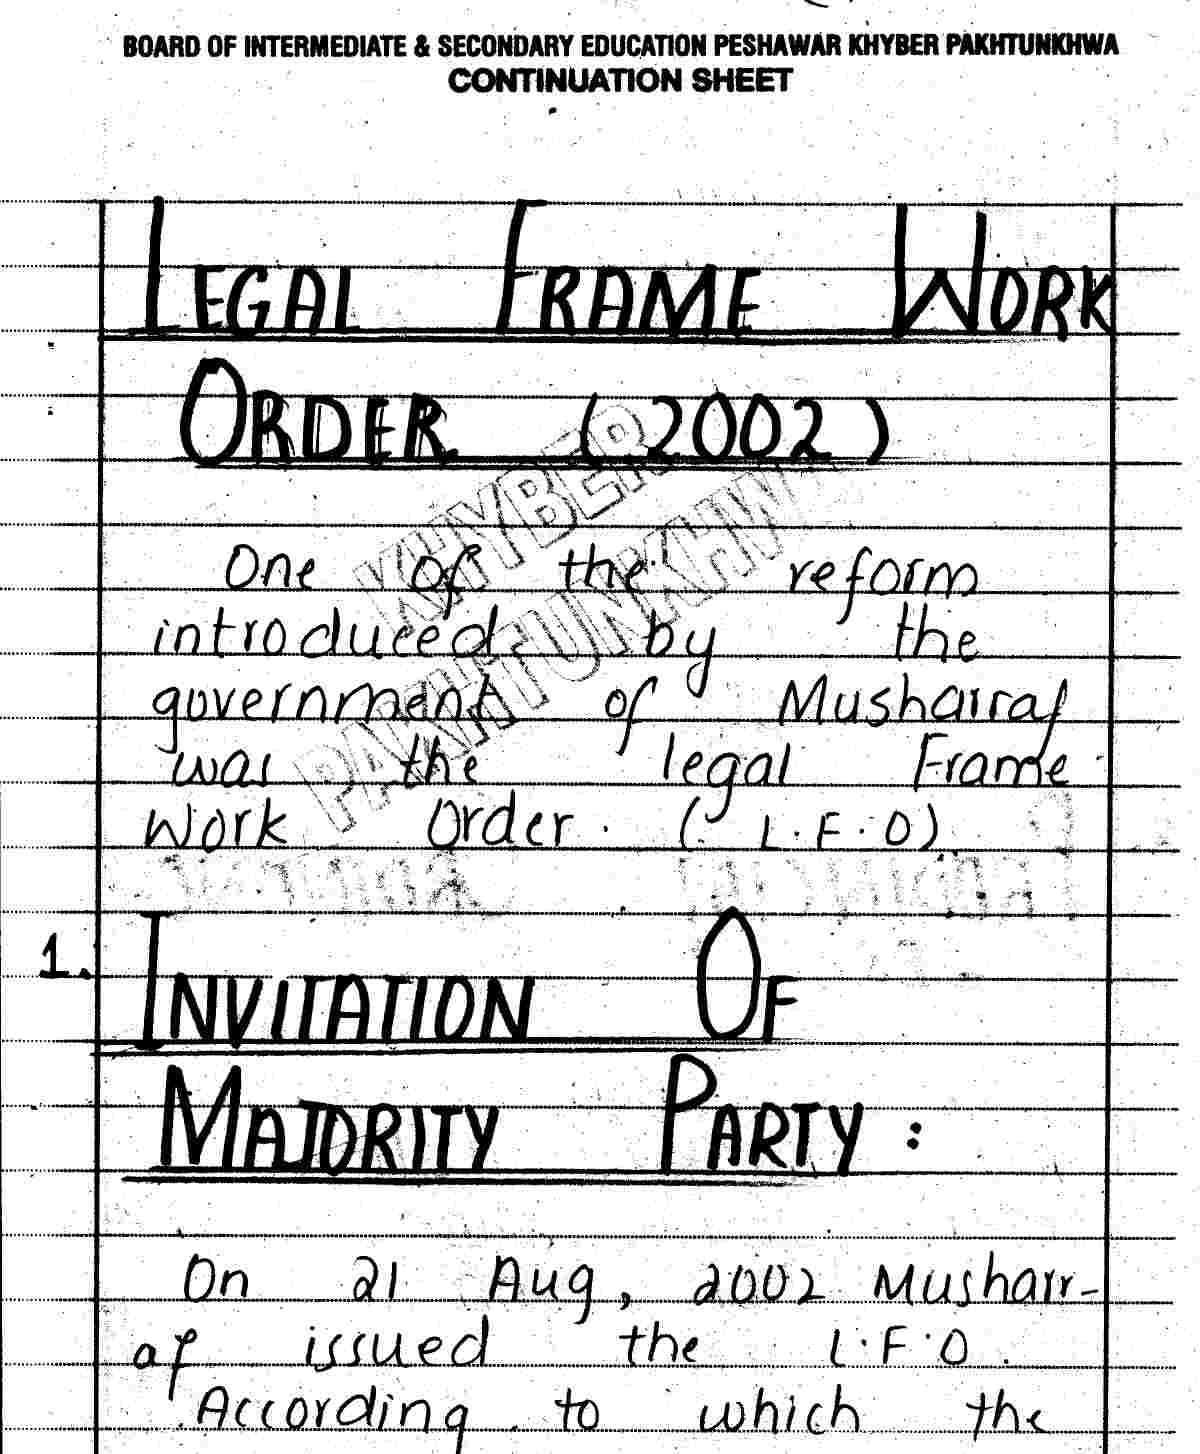 BOARD OF INTERMEDIATE & SECONDARY EDUCATION PESHAWAR KHYBER PAKHTUNKHWA
CONTINUATION SHEET
LEGAL FRAME WORK
ORDER (2002)
KHYBER
PAKHTUNKHWA
One of the reform
introduced by the
government of Musharraf
was the legal Frame
Work Order. (L.F.O)
1. INVITATION OF
MAJORITY PARTY:
On 21 Aug, 2002 Musharr-
af issued the L.F.O.
According to which the